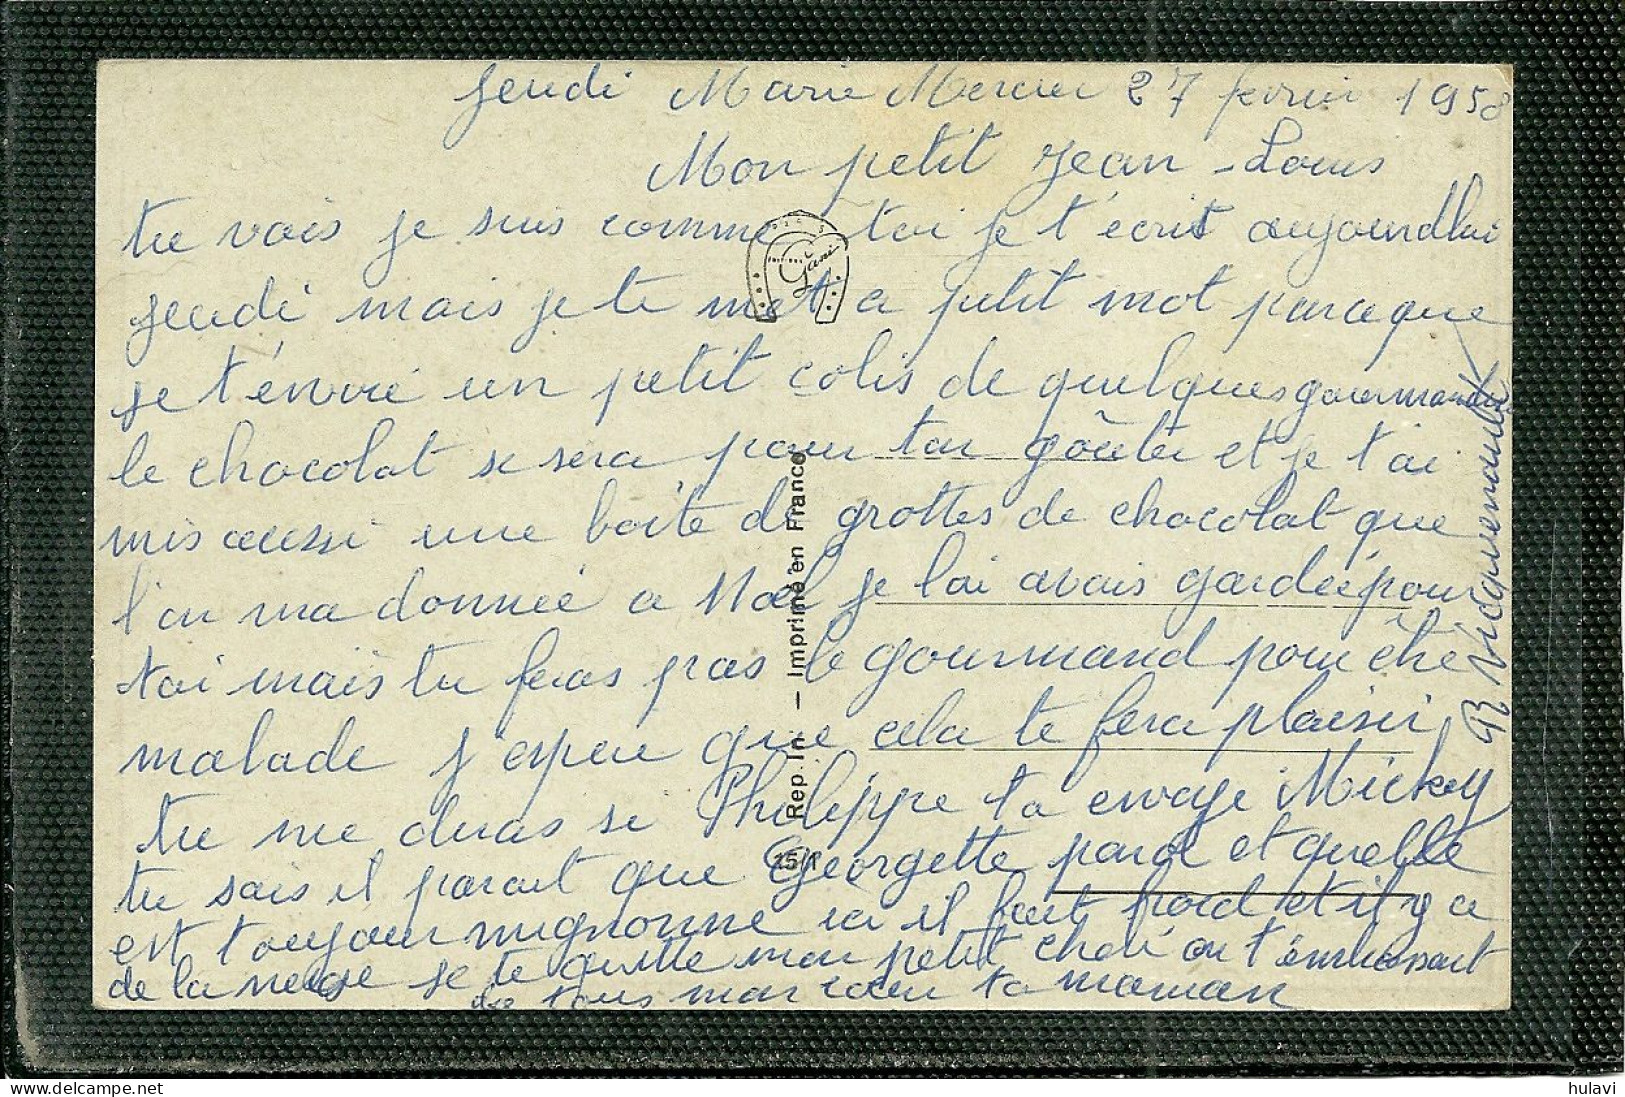 Jeudi Marie Mercier 27 fevrier 1958
Mon petit Jean-Louis
tu vois je suis comme toi je t'écrit aujourdhui
jeudi mais je te met a petit mot parceque
je t'envoie un petit colis de quelques gourmandises
le chocolat se sera pour ton goûter et je t'ai
mis aussi une boite de grottes de chocolat que
l'on ma donneé a Noel je lai avais gardeé pour
toi mais tu feras pas le gourmand pour être
malade j'espere que cela te fera plaisir
tu me diras si Philippe ta envoyé Mickey
tu sais il parait que Georgette parle et quelle
est toujour mignonne ici il fait froid et il y a
de la neige je te quitte mon petit cheri en t'embrassant
de tous mon coeur ta maman
Gani
Rep. In. — Imprimé en France
15/1
hulavi